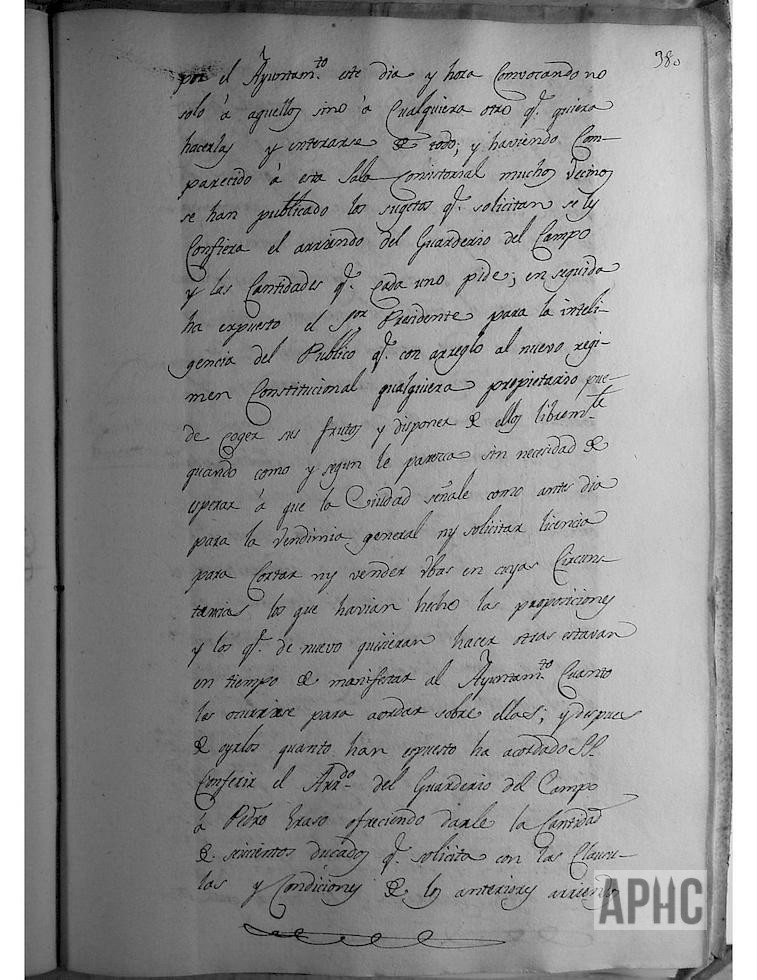 98.
por el Ayuntam.to este dia y hora Convocando no
solo á aquellos sino á Cualquiera otro q.e quiera
hacerlas y enterarse de todo; y haviendo Com-
parecido á esta Sala Consistorial muchos vecinos
se han publicado los sugetos q.e solicitan se les
Confiera el arriendo del Guarderio del Campo
y las Cantidades q.e cada uno pide; en seguida
ha expuesto el S.or Presidente para la inteli-
gencia del Publico q.e con arreglo al nuevo regi-
men Constitucional qualquiera propietario pue-
de coger sus frutos y disponer de ellos librem.te
quando como y segun le parezca sin necesidad de
esperar á que la Ciudad señale como antes dia
para la vendimia general ny solicitar licencia
para Cortar ny vender vbas en cuyas Circuns-
tancias los que havian hecho las proposiciones
y los q.e de nuevo quisieran hacer otras estavan
en tiempo de manifestar al Ayuntam.to Cuanto
les ocurriese para acordar sobre ellas; y despues
de oyrlos quanto han expuesto ha acordado SS.
Conferir el Arr.do del Guarderio del Campo
á Pedro Eraso ofreciendo darle la Cantidad
de seiscientos ducados q.e solicita con las Clausu-
las y Condiciones de los anteriores arriendos
APHC